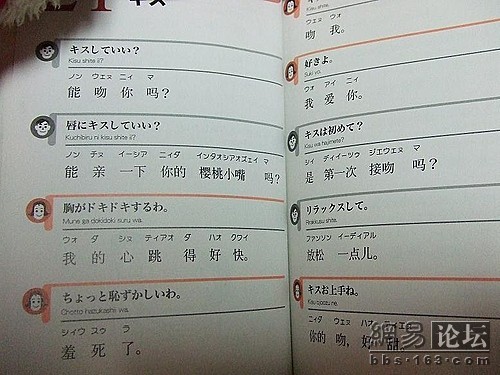 キス
キスしていい?
Kisu shite ii?
ノン ウェヌ ニィ マ
能 吻 你 吗?
唇にキスしていい?
Kuchibiru ni kisu shite ii?
ノン チヌ イーシア ニィダ インタオシアオズェイ マ
能 亲 一下 你的 樱桃小嘴 吗?
胸がドキドキするわ。
Mune ga dokidoki suru wa.
ウォ ダ シヌ ティアオ ダ ハオ クワイ
我 的 心 跳 得 好 快。
ちょっと恥ずかしいわ。
Chotto hazukashii wa.
シィウ スゥ ラ
羞 死 了。
Kisu shite.
ウェヌ ウォ
吻 我。
好きよ。
Suki yo.
ウォ アイ ニィ
我 爱 你。
キスは初めて?
Kisu wa hajimete?
シィ ディイーツゥ ジエウェヌ マ
是 第一次 接吻 吗?
リラックスして。
Rirakkusu shite.
ファンソン イーディアル
放松 一点儿。
キスお上手ね。
Kisu ojozu ne.
ニィダ ウェヌ ハオ
你的 吻, 好 甜
網易 论坛
bbs.163.com